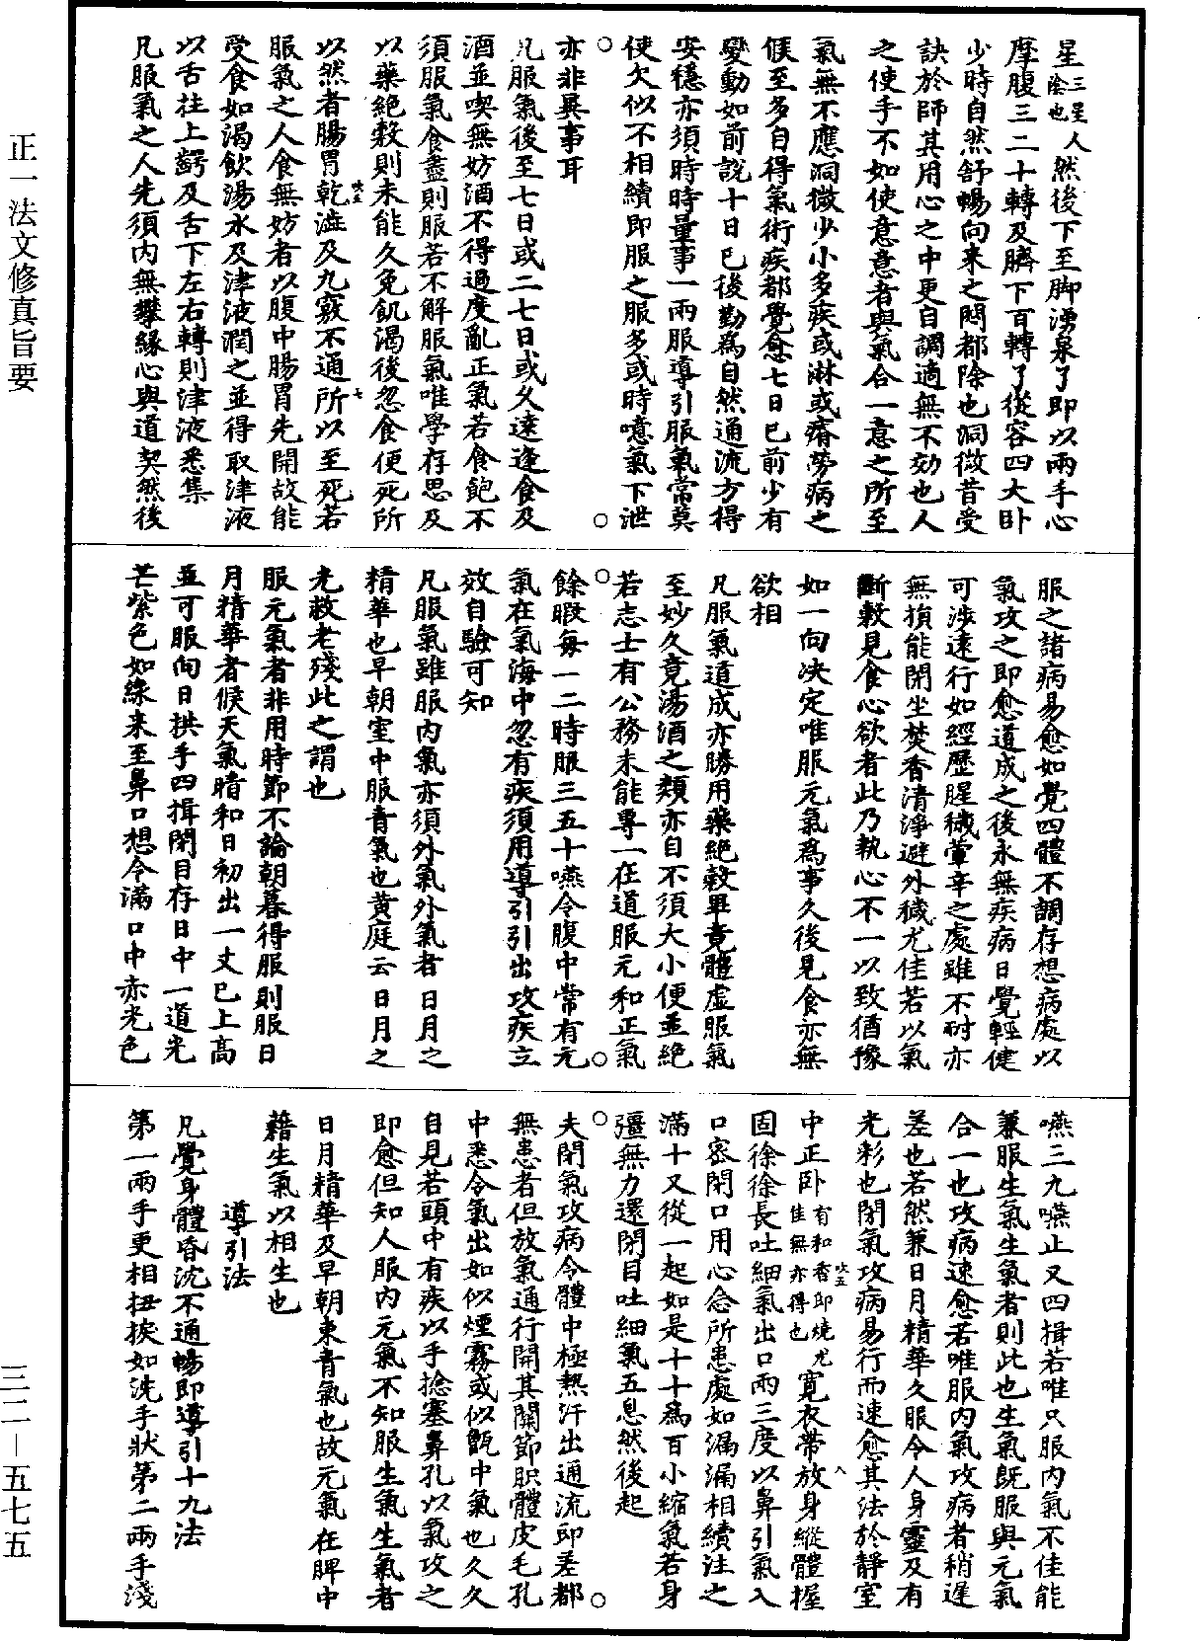 正一法文修真旨要
三二—五七五
星三星陰也人然後下至脚湧泉了即以兩手心
摩腹三二十轉及臍下百轉了從容四大卧
少時自然舒暢向來之悶都除也洞微昔受
訣於師其用心之中更自調適無不効也人
之使手不如使意意者與氣合一意之所至
氣無不應洞微少小多疾或淋或瘠勞病之
候至多自得氣術疾都覺愈七日已前少有
變動如前說十日已後勤爲自然通流方得
安穩亦須時時量事一兩服導引服氣常莫
使欠似不相續即服之服多或時噫氣下泄
亦非異事耳
凡服氣後至七日或二七日或久遠逢食及
酒並喫無妨酒不得過度亂正氣若食飽不
須服氣食盡則服若不解服氣唯學存思及
以藥絕穀則未能久免飢渴後忽食便死所
以然者腸胃乾澁及九竅不通所以至死若
服氣之人食無妨者以腹中腸胃先開故能
受食如渴飲湯水及津液潤之並得取津液
以舌拄上齶及舌下左右轉則津液悉集
凡服氣之人先須內無攀緣心與道契然後
服之諸病易愈如覺四體不調存想病處以
氣攻之即愈道成之後永無疾病日覺輕健
可涉遠行如經歷腥穢葷辛之處雖不耐亦
無損能閉坐焚香清淨避外穢尤佳若以氣
斷穀見食心欲者此乃執心不一以致猶豫
如一向决定唯服元氣爲事久後見食亦無
欲相
凡服氣道成亦勝用藥絕穀畢竟體虛服氣
至妙久竟湯酒之類亦自不須大小便並絕
若志士有公務未能專一在道服元和正氣
餘暇每一二時服三五十嚥令腹中常有元
氣在氣海中忽有疾須用導引引出攻疾立
效自驗可知
凡服氣雖服內氣亦須外氣外氣者日月之
精華也早朝室中服青氣也黃庭云日月之
光救老殘此之謂也
服元氣者非用時節不論朝暮得服則服日
月精華者候天氣晴和日初出一丈已上高
並可服向日拱手四揖閉目存日中一道光
芒紫色如線来至鼻口想令滿口中赤光色
嚥三九嚥止又四揖若唯只服內氣不佳能
兼服生氣生氣者則此也生氣既服與元氣
合一也攻病速愈若唯服內氣攻病者稍遲
差也若然兼日月精華久服令人身靈及有
光彩也閉氣攻病易行而速愈其法於靜室
中正卧有和香即燒尤佳無亦得也寬衣帶放身縱體握
固徐徐長吐細氣出口兩三度以鼻引氣入
口密閉口用心念所患處如漏漏相續注之
滿十又從一起如是十十爲百小縮氣若身
彊無力還閉目吐細氣五息然後起
夫閉氣攻病令體中極熱汗出通流即差都
無患者但放氣通行開其關節肢體皮毛孔
中悉令氣出如似煙霧或似甑中氣也久久
自見若頭中有疾以手捻塞鼻孔以氣攻之
即愈但知人服內元氣不知服生氣生氣者
日月精華及早朝東青氣也故元氣在脾中
藉生氣以相生也
導引法
凡覺身體昏沈不通暢即導引十九法
第一兩手更相扭捘如洗手狀第二兩手淺